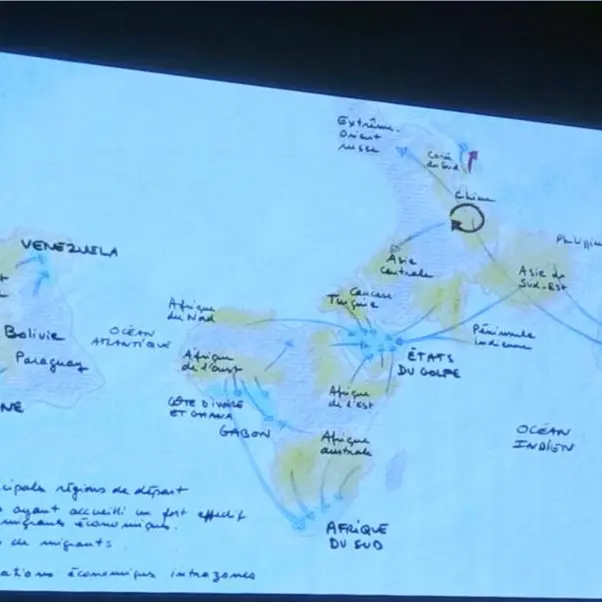 Extrême-
Orient
russe
Corée
du Sud
Chine
VENEZUELA
Asie
centrale
Asie du
Sud-Est
Caucase
Turquie
Afrique
du Nord
Bolivie
OCÉAN
ATLANTIQUE
Péninsule
indienne
Paraguay
Afrique
de l'Ouest
ÉTATS
DU GOLFE
Afrique
de l'Est
CÔTE D'IVOIRE
ET GHANA
GABON
Afrique
australe
OCÉAN
INDIEN
régions de départ
ayant accueilli un fort effectif
migrants économiques.
de migrants.
économiques intrazones
AFRIQUE
DU SUD